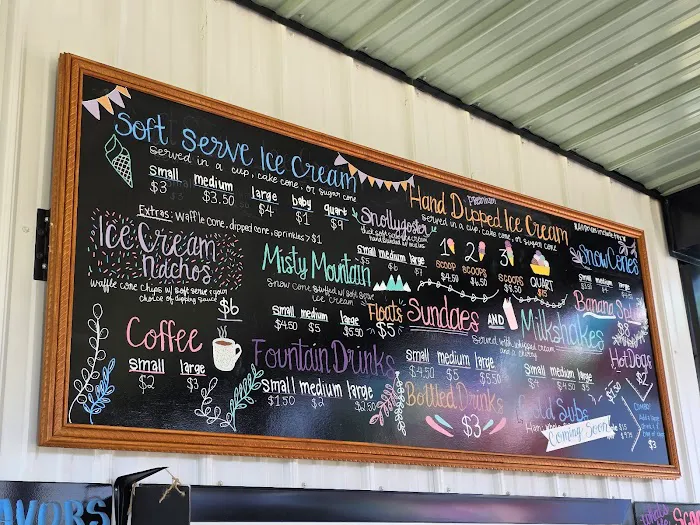 Soft Serve Ice Cream
Served in a cup, cake cone, or sugar cone
small medium large baby quart
$3 $3.50 $4 $1 $9
Extras: waffle cone, dipped cone, sprinkles > $1
Ice Cream
Nachos
waffle cone chips w/ soft serve & your
choice of dipping sauce
$6
Coffee
small large
$2 $3
Snollygoster
small medium large
$5 $6 $7
Misty Mountain
Snow cone stuffed w/ soft serve
ice cream
small medium large
$4.50 $5 $5.50
Floats
$5
Fountain Drinks
small medium large
$1.50 $2 $2.50
Premium
Hand Dipped Ice Cream
Served in a cup, cake cone or sugar cone
1 2 3
scoop scoops scoops QUART
Sundaes AND Milkshakes
Served with whipped cream
and a cherry
small medium large
$4.50 $5 $5.50
small medium large
$4 $4.50 $5
Bottled Drinks
$3
Snow Cones
small medium large
Banana Split
Hot Dogs
Cold Subs
Coming Soon
COMBO
$3
VORS